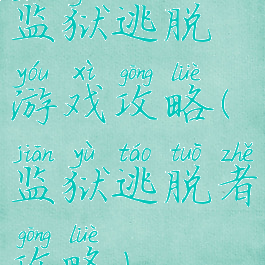 监狱逃脱
yóu xì gōng lüè
游戏攻略(
jiān yù táo tuō zhě
监狱逃脱者
gōng lüè
攻略)